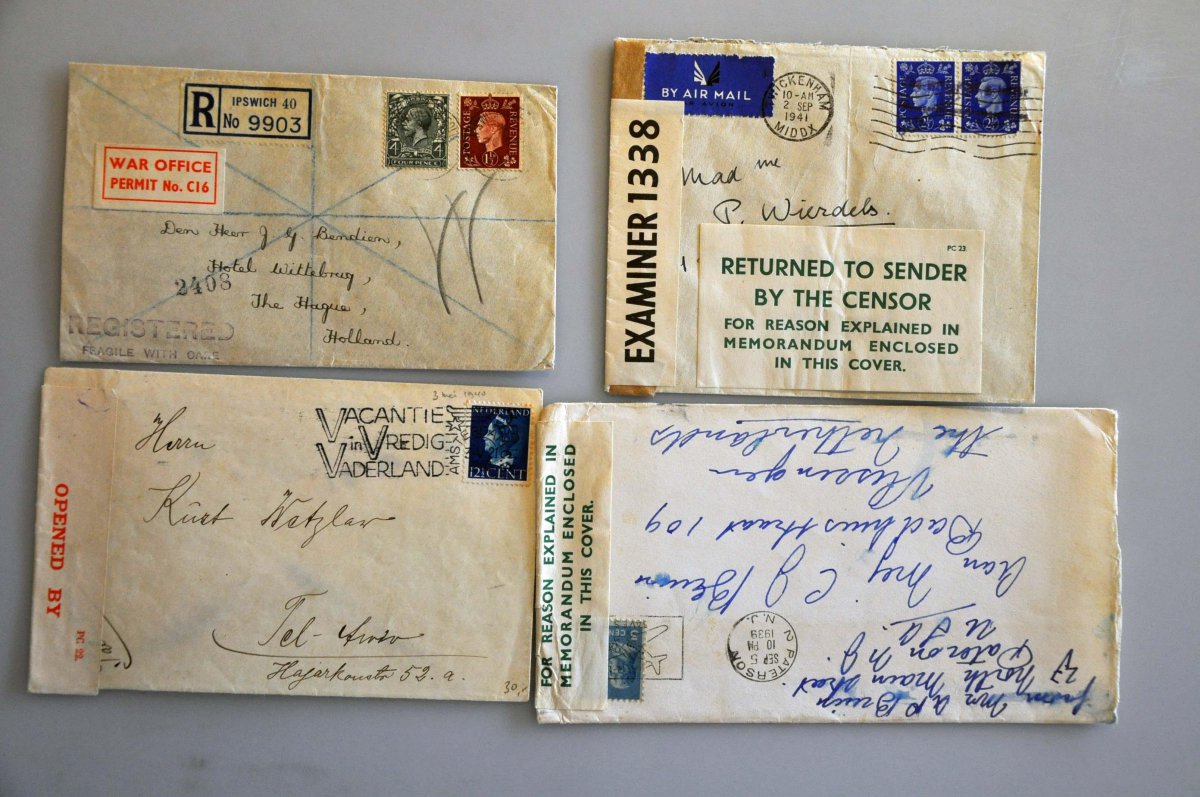 R
IPSWICH 40
No 9903
WAR OFFICE
PERMIT No. C16
4 4
FOUR PENCE
POSTAGE
REVENUE
1½
Den Heer J G Bendien,
Hotel Wittebrug,
2408
The Hague,
Holland.
REGISTERED
FRAGILE WITH CARE
BY AIR MAIL
PAR AVION
TWICKENHAM
10-AM
2 SEP
1941
MIDDX
POSTAGE REVENUE
2½
POSTAGE REVENUE
2½
EXAMINER 1338
Madme
P. Wierdels.
PC 23.
RETURNED TO SENDER
BY THE CENSOR
FOR REASON EXPLAINED IN
MEMORANDUM ENCLOSED
IN THIS COVER.
OPENED BY
PC 22.
3 mei 1940
VACANTIE
in VREDIG
VADERLAND
NEDERLAND
12½ CENT
Herrn
Kurt Watzlav
Tel-Aviv
Hajarkonstr 52. a.
30,-
FOR REASON EXPLAINED IN
MEMORANDUM ENCLOSED
IN THIS COVER.
from Mrs A P Bruijn
27 North Main street
Paterson N J.
U S a.
PATERSON
SEP 5
10 PM
1939
N. J.
Aan Mej C J Bruin
Badhuisstraat 109
Vlissingen
the Netherlands